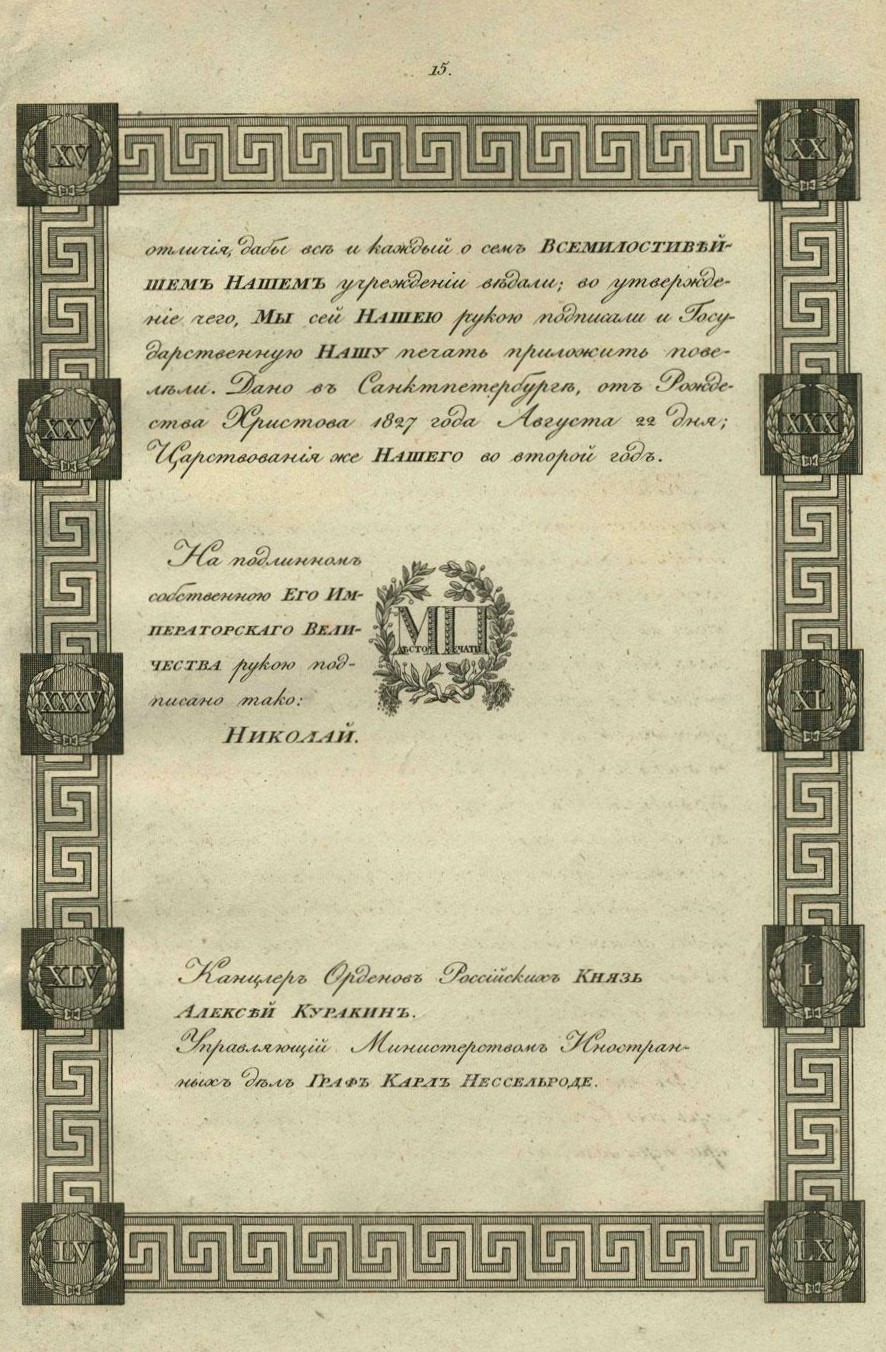 15.
XV
XX
отличія, дабы всѣ и каждый о семъ ВСЕМИЛОСТИВѢЙ-
ШЕМЪ НАШЕМЪ учрежденіи вѣдали; во утвержде-
ніе чего, МЫ сей НАШЕЮ рукою подписали и Госу-
дарственную НАШУ печать приложить пове-
лѣли. Дано въ Санктпетербургѣ, отъ Рожде-
ства Христова 1827 года Августа 22 дня;
Царствованія же НАШЕГО во второй годъ.
XXV
XXX
На подлинномъ
собственною ЕГО ИМ-
ПЕРАТОРСКАГО ВЕЛИ-
ЧЕСТВА рукою под-
писано тако:
НИКОЛАЙ.
МѢСТО ПЕЧАТИ
XXXV
XL
XLV
L
Канцлеръ Орденовъ Россійскихъ КНЯЗЬ
АЛЕКСѢЙ КУРАКИНЪ.
Управляющій Министерствомъ Иностран-
ныхъ дѣлъ ГРАФЪ КАРЛЪ НЕССЕЛЬРОДЕ.
LV
LX